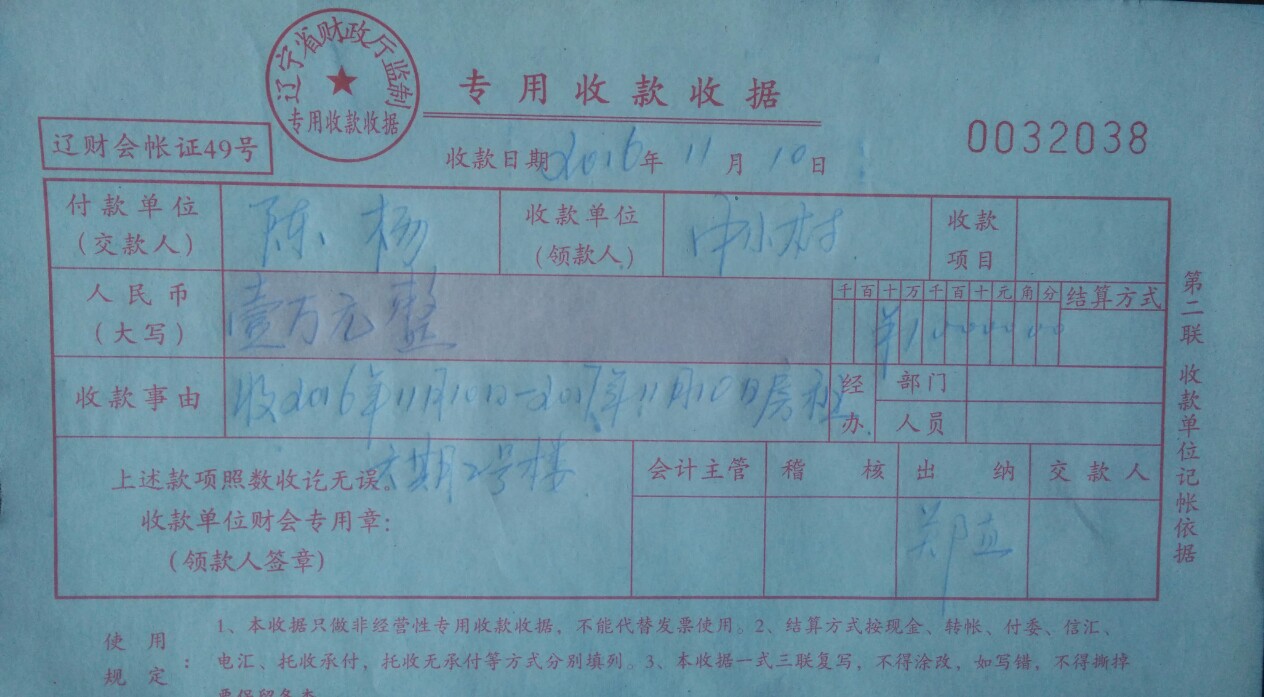 辽宁省财政厅监制
专用收款收据
专用收款收据
辽财会帐证49号
收款日期2016年11月10日
0032038
付款单位（交款人） 陈杨 收款单位（领款人） 收款项目
人民币（大写） 壹万元整 千百十万千百十元角分 结算方式
¥1000000
收款事由 收2016年11月10日-2017年11月10日房租 经办 部门
人员
六期2号楼
上述款项照数收讫无误。 会计主管 稽核 出纳 交款人
收款单位财会专用章：
（领款人签章） 郑直
第二联 收款单位记帐依据
使用规定：
1、本收据只做非经营性专用收款收据，不能代替发票使用。2、结算方式按现金、转帐、付委、信汇、
电汇、托收承付，托收无承付等方式分别填列。3、本收据一式三联复写，不得涂改，如写错，不得撕掉